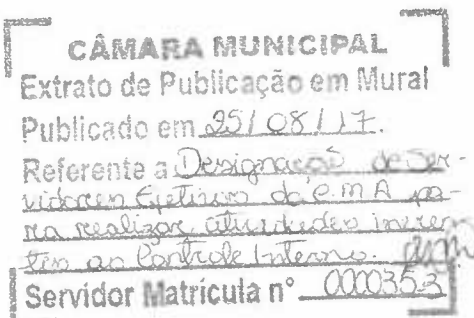 CÂMARA MUNICIPAL
Extrato de Publicação em Mural
Publicado em 25/08/17.
Referente a Designação de Ser-
vidores Efetivos da C.M.A pa-
ra realizar atividades ineren
tes ao Controle Interno.
Servidor Matrícula n° 000035-3